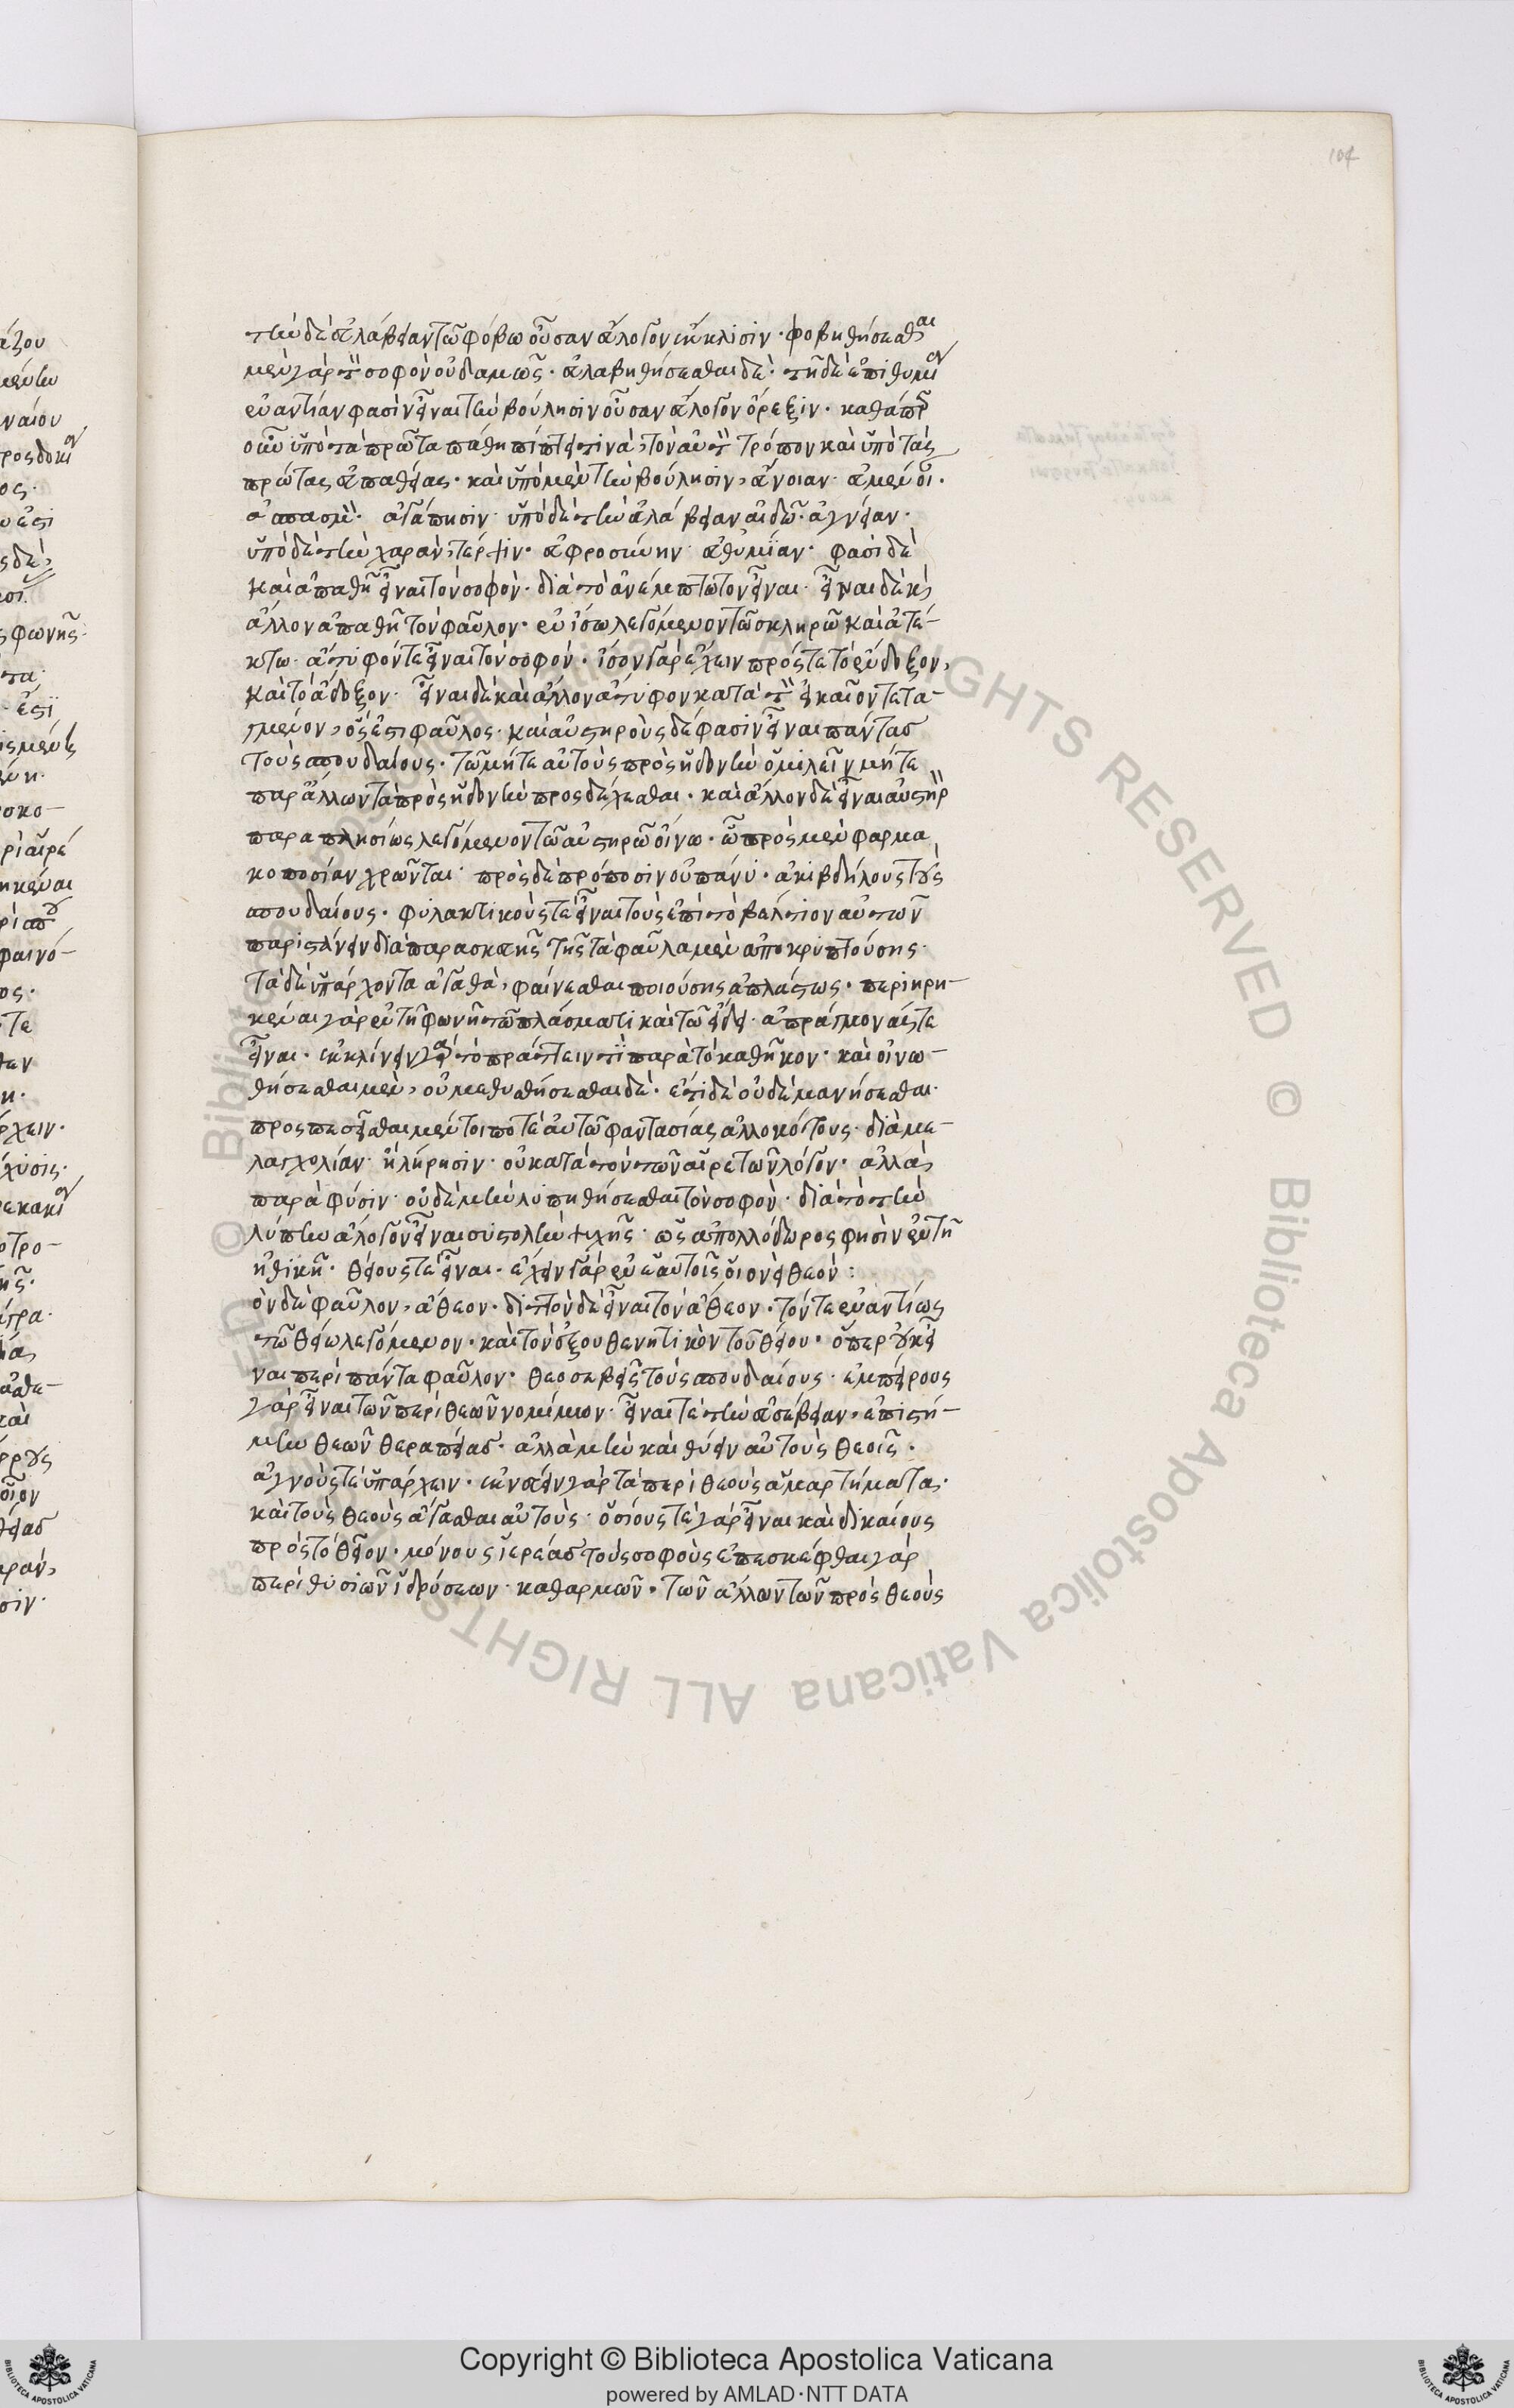 104
τὴν δὲ εὐλάβειαν τῶ φόβω οὖσαν εὔλογον ἔκκλισιν· φοβηθήσεσθαι
μὲν γὰρ τὸν σοφὸν οὐδαμῶς· εὐλαβηθήσεσθαι δέ· τῆ δὲ ἐπιθυμία
ἐναντίαν φασὶν εἶναι τὴν βούλησιν οὖσαν εὔλογον ὄρεξιν· καθάπερ
οὖν ὑπὸ τὰ πρῶτα πάθη πίπτει τινὰ, τὸν αὐτὸν τρόπον καὶ ὑπὸ τὰς
πρώτας εὐπαθείας· καὶ ὑπὸ μὲν τὴν βούλησιν, εὔνοιαν· εὐμένοι·
ἀσπασμὸ· ἀγάπησιν· ὑπὸ δὲ τὴν εὐλάβειαν αἰδῶ· ἁγνείαν·
ὑπὸ δὲ τὴν χαρὰν, τέρψιν· εὐφροσύνην· εὐθυμίαν· φασὶ δὲ
καὶ ἀπαθῆ εἶναι τὸν σοφὸν· διὰ τὸ ἀνέμπτωτον εἶναι· εἶναι δὲ καὶ
ἄλλον ἀπαθῆ τὸν φαῦλον· ἐν ἴσω λεγόμενον τῶ σκληρῶ καὶ ἀτέ-
κτω· ἄτυφόν τε εἶναι τὸν σοφόν· ἴσον γὰρ ἔχειν πρός τε τὸ εὔδοξον,
καὶ τὸ ἄδοξον· εἶναι δὲ καὶ ἄλλον ἄτυφον κατὰ τὸν εἰκαῖον τετα-
γμένον, ὅς ἐστι φαῦλος· καὶ αὐστηροὺς δέ φασιν εἶναι πάντας
τοὺς σπουδαίους· τῶ μήτε αὐτοὺς πρὸς ἡδονὴν ὁμιλεῖν μήτε
παρ' ἄλλων τὰ πρὸς ἡδονὴν προσδέχεσθαι· καὶ ἄλλον δὲ εἶναι αὐστηρὸν
παραπλησίως λεγόμενον τῶ αὐστηρῶ οἴνω· ὧ πρὸς μὲν φαρμα
κοποσίαν χρῶνται· πρὸς δὲ πρόποσιν οὐ πάνυ· ἀκιβδήλους τοὺς
σπουδαίους· φυλακτικούς τε εἶναι τοὺς ἐπὶ τὸ βέλτιον αὐτῶν
παριστάνειν διὰ παρασκευῆς τῆς τὰ φαῦλα μὲν ἀποκρυπτούσης·
τὰ δὲ ὑπάρχοντα ἀγαθὰ, φαίνεσθαι ποιούσης ἀπλάστως· περιηρη-
κέναι γὰρ ἐν τῆ φωνῆ τῶ πλάσματι καὶ τῶ εἴδει· ἀπράγμονάς τε
εἶναι· ἐκκλίνειν γὰρ τὸ πράττειν τι παρὰ τὸ καθῆκον· καὶ οἰνω-
θήσεσθαι μὲν, οὐ μεθυσθήσεσθαι δέ· ἔτι δὲ οὐδὲ μανήσεσθαι·
προσπεσεῖσθαι μέντοι ποτὲ αὐτῶ φαντασίας ἀλλοκότους· διὰ με-
λαγχολίαν· ἢ λήρησιν· οὐ κατὰ τὸν τῶν αἱρετῶν λόγον· ἀλλὰ
παρὰ φύσιν· οὐδὲ μὴν λυπηθήσεσθαι τὸν σοφὸν· διὰ τὸ τὴν
λύπην ἄλογον εἶναι συστολὴν ψυχῆς· ὥς ἀπολλόδωρος φησὶν ἐν τῆ
ἠθικῆ· θείους τε εἶναι· ἔχειν γὰρ ἐν ἑαυτοῖς οἱονεὶ θεόν:
ὸν δὲ φαῦλον, ἄθεον· διττὸν δὲ εἶναι τὸν ἄθεον· τόν τε ἐναντίως
τῶ θείω λεγόμενον· καὶ τὸν ἐξουθενητικὸν τοῦ θείου· ὅπερ οὐκ εἶ
ναι περὶ πάντα φαῦλον· θεοσεβεῖς τοὺς σπουδαίους· ἐμπείρους
γὰρ εἶναι τῶν περὶ θεῶν νομίμων· εἶναι τε τὴν εὐσέβειαν· ἐπιστή-
μην θεῶν θεραπείας· ἀλλὰ μὴν καὶ θύειν αὐτοὺς θεοῖς·
ἁγνούς τε ὑπάρχειν· ἐκνεύειν γὰρ τὰ περὶ θεοὺς ἁμαρτήματα·
καὶ τοὺς θεοὺς ἄγασθαι αὐτούς· ὁσίους τε γὰρ εἶναι καὶ δικαίους
πρὸς τὸ θεῖον· μόνους ἱερέας τοὺς σοφοὺς ἐπεσκέφθαι γὰρ
περὶ θυσιῶν ἱδρύσεων· καθαρμῶν· τῶν ἄλλων τῶν πρὸς θεοὺς
© Biblioteca Apostolica Vaticana ALL RIGHTS RESERVED
Copyright © Biblioteca Apostolica Vaticana
powered by AMLAD·NTT DATA
BIBLIOTECA APOSTOLICA VATICANA